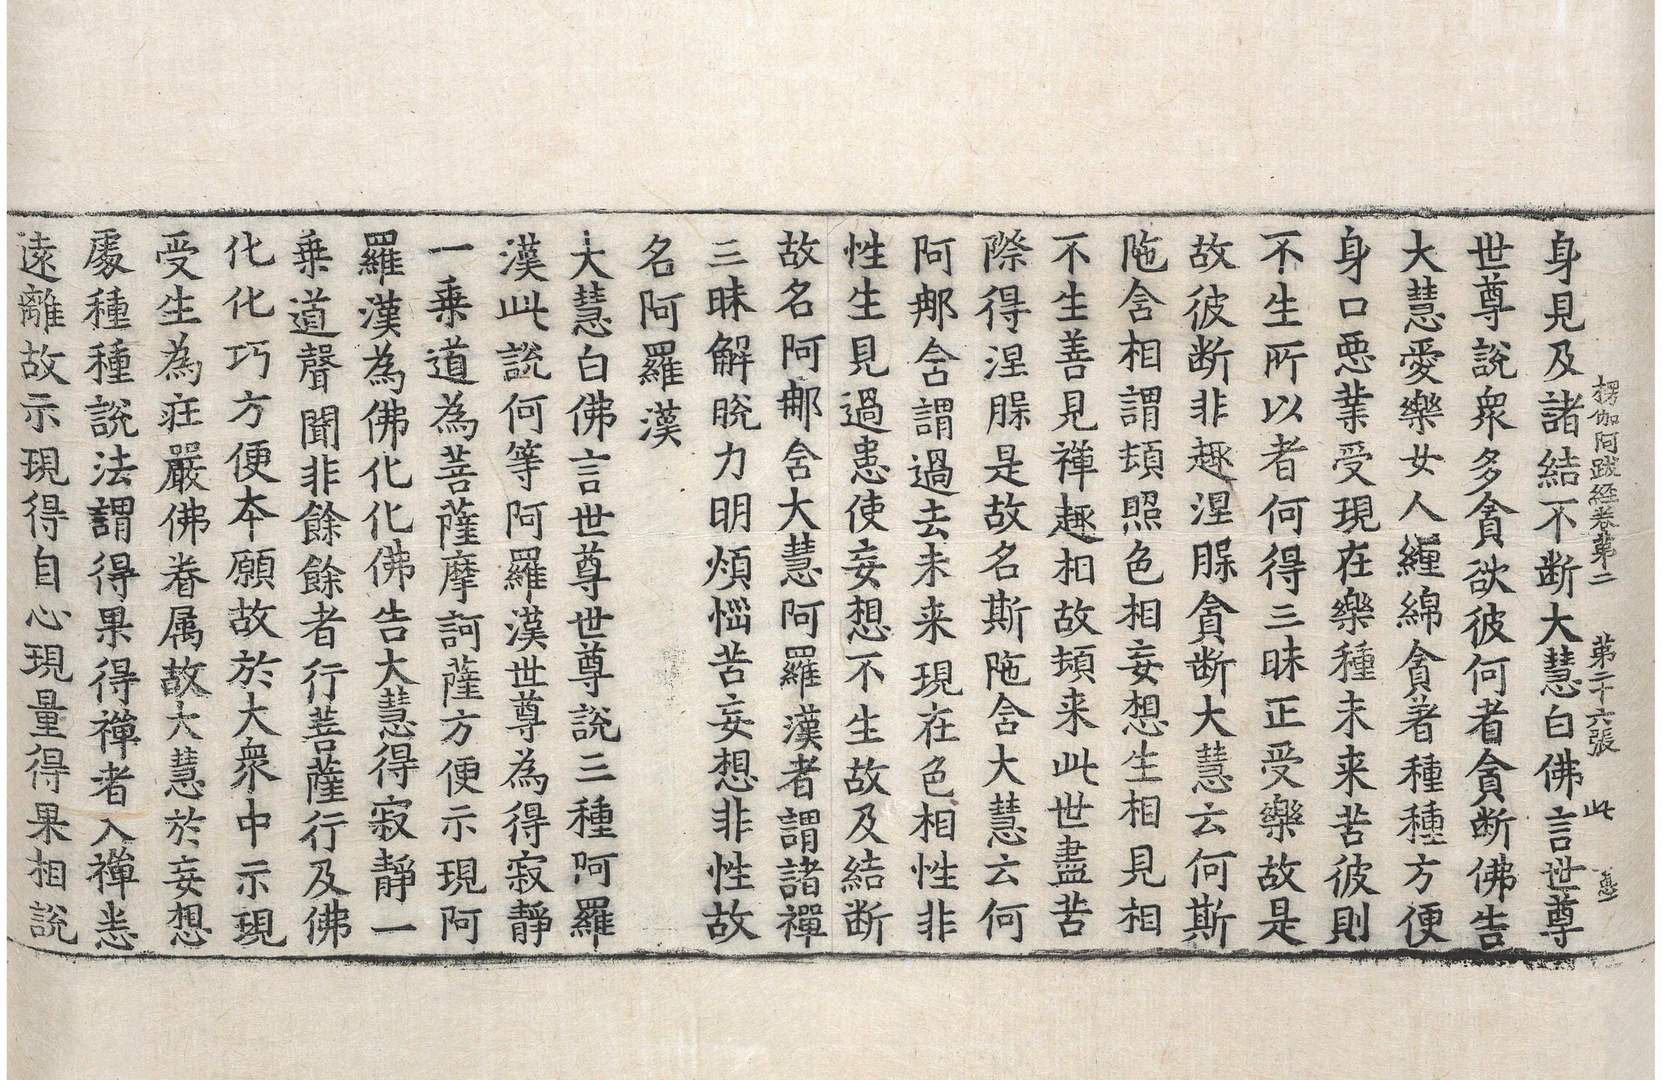 楞伽阿跋經卷第二　第二十六張　此
身見及諸結不断大慧白佛言世尊
世尊說衆多貪欲彼何者貪断佛告
大慧愛樂女人纏綿貪著種種方便
身口惡業受現在樂種未来苦彼則
不生所以者何得三昧正受樂故是
故彼断非趣涅脲貪断大慧云何斯
陁含相謂頓照色相妄想生相見相
不生善見禅趣相故頓来此世盡苦
際得涅脲是故名斯陁含大慧云何
阿那含謂過去未来現在色相性非
性生見過患使妄想不生故及結断
故名阿那含大慧阿羅漢者謂諸禪
三昧解脫力明煩惱苦妄想非性故
名阿羅漢
大慧白佛言世尊世尊說三種阿羅
漢此說何等阿羅漢世尊為得寂靜
一乗道為菩薩摩訶薩方便示現阿
羅漢為佛化化佛告大慧得寂靜一
乗道聲聞非餘餘者行菩薩行及佛
化化巧方便本願故於大衆中示現
受生為莊嚴佛眷属故大慧於妄想
處種種說法謂得果得禪者入禪悉
遠離故示現得自心現量得果相說